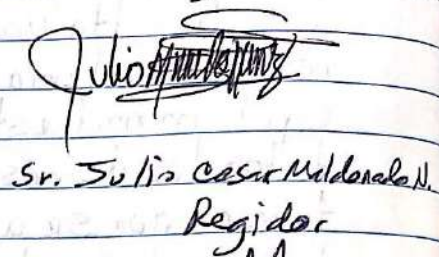 Julio
Sr. Julio Cesar Maldonado N.
Regidor